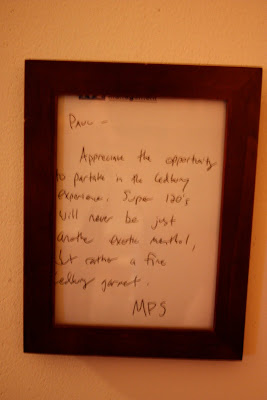 Paul -
Appreciate the opportunity
to partake in the Ledbury
experience. Super 120's
will never be just
another exotic menthol,
but rather a fine
Ledbury garment.
MPS